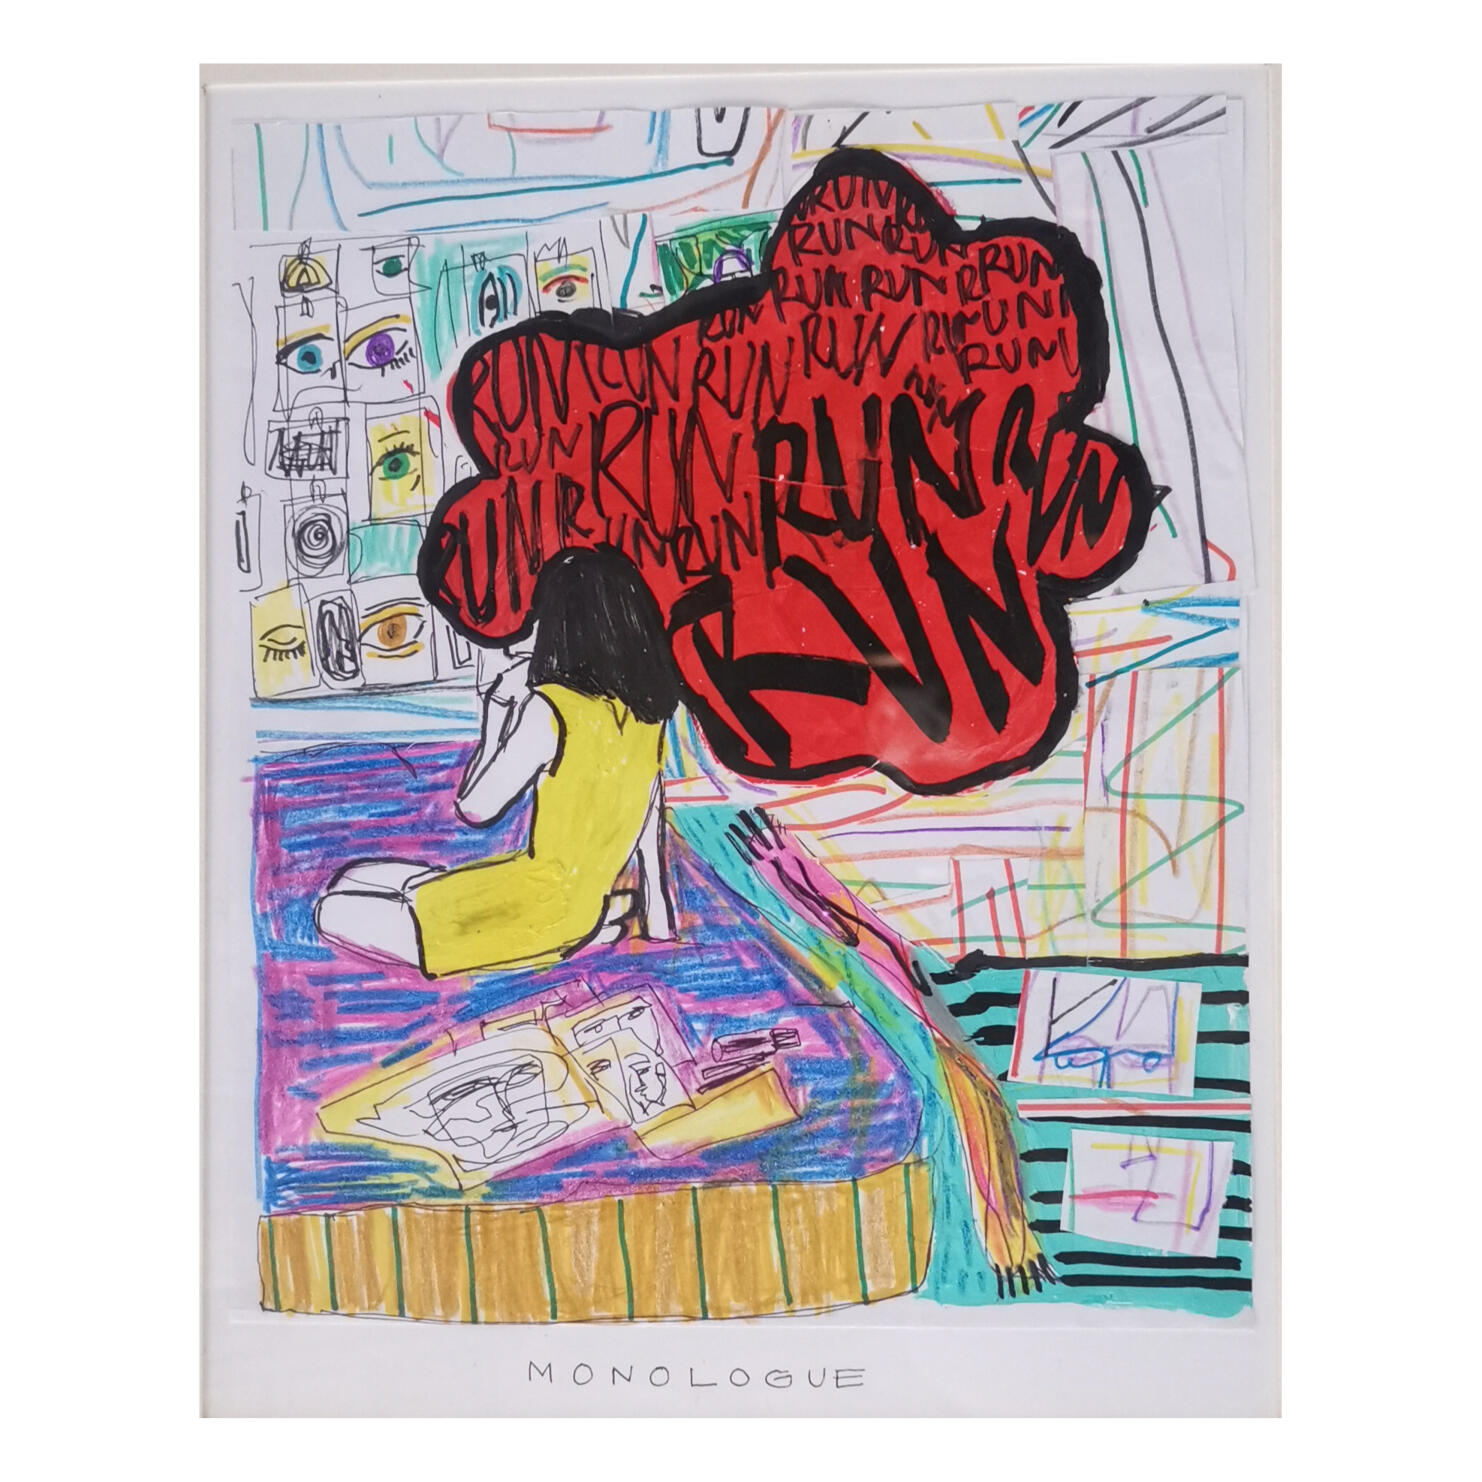 RUN RUN
RUN RUN
RUN RUN RUN RUN
RUN RUN RUN RUN
RUN RUN RUN RUN
RUN RUN RUN RUN
RUN RUN RUN RUN
RUN RUN RUN
RUN
MONOLOGUE